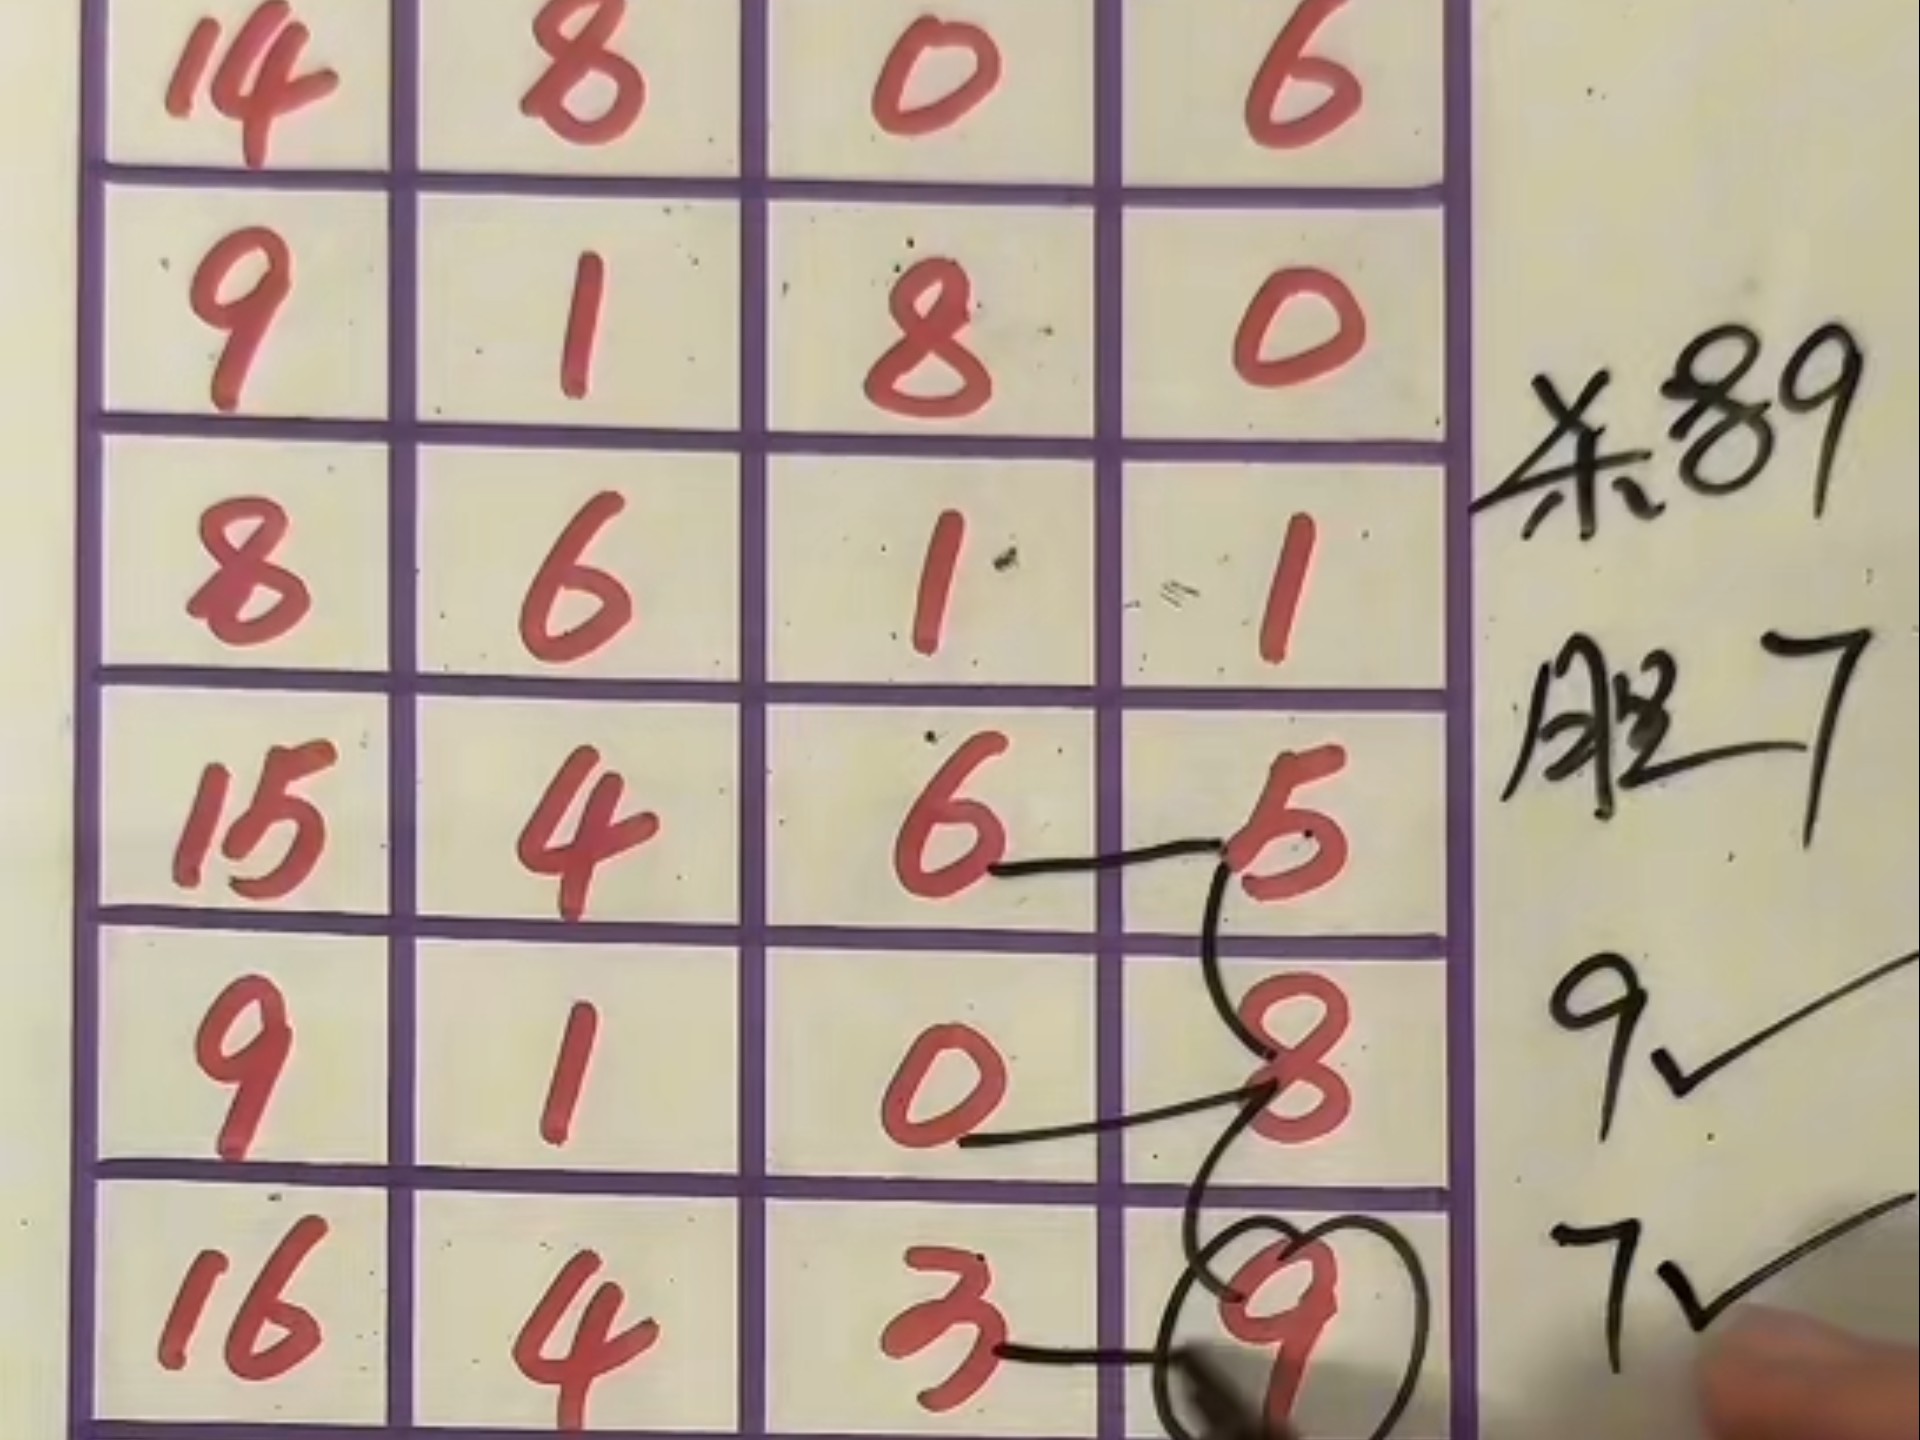 14 8 0 6
9 1 8 0
杀89
8 6 1 1
胆7
15 4 6 5
9 1 0 8
9✓
16 4 3 9
7✓